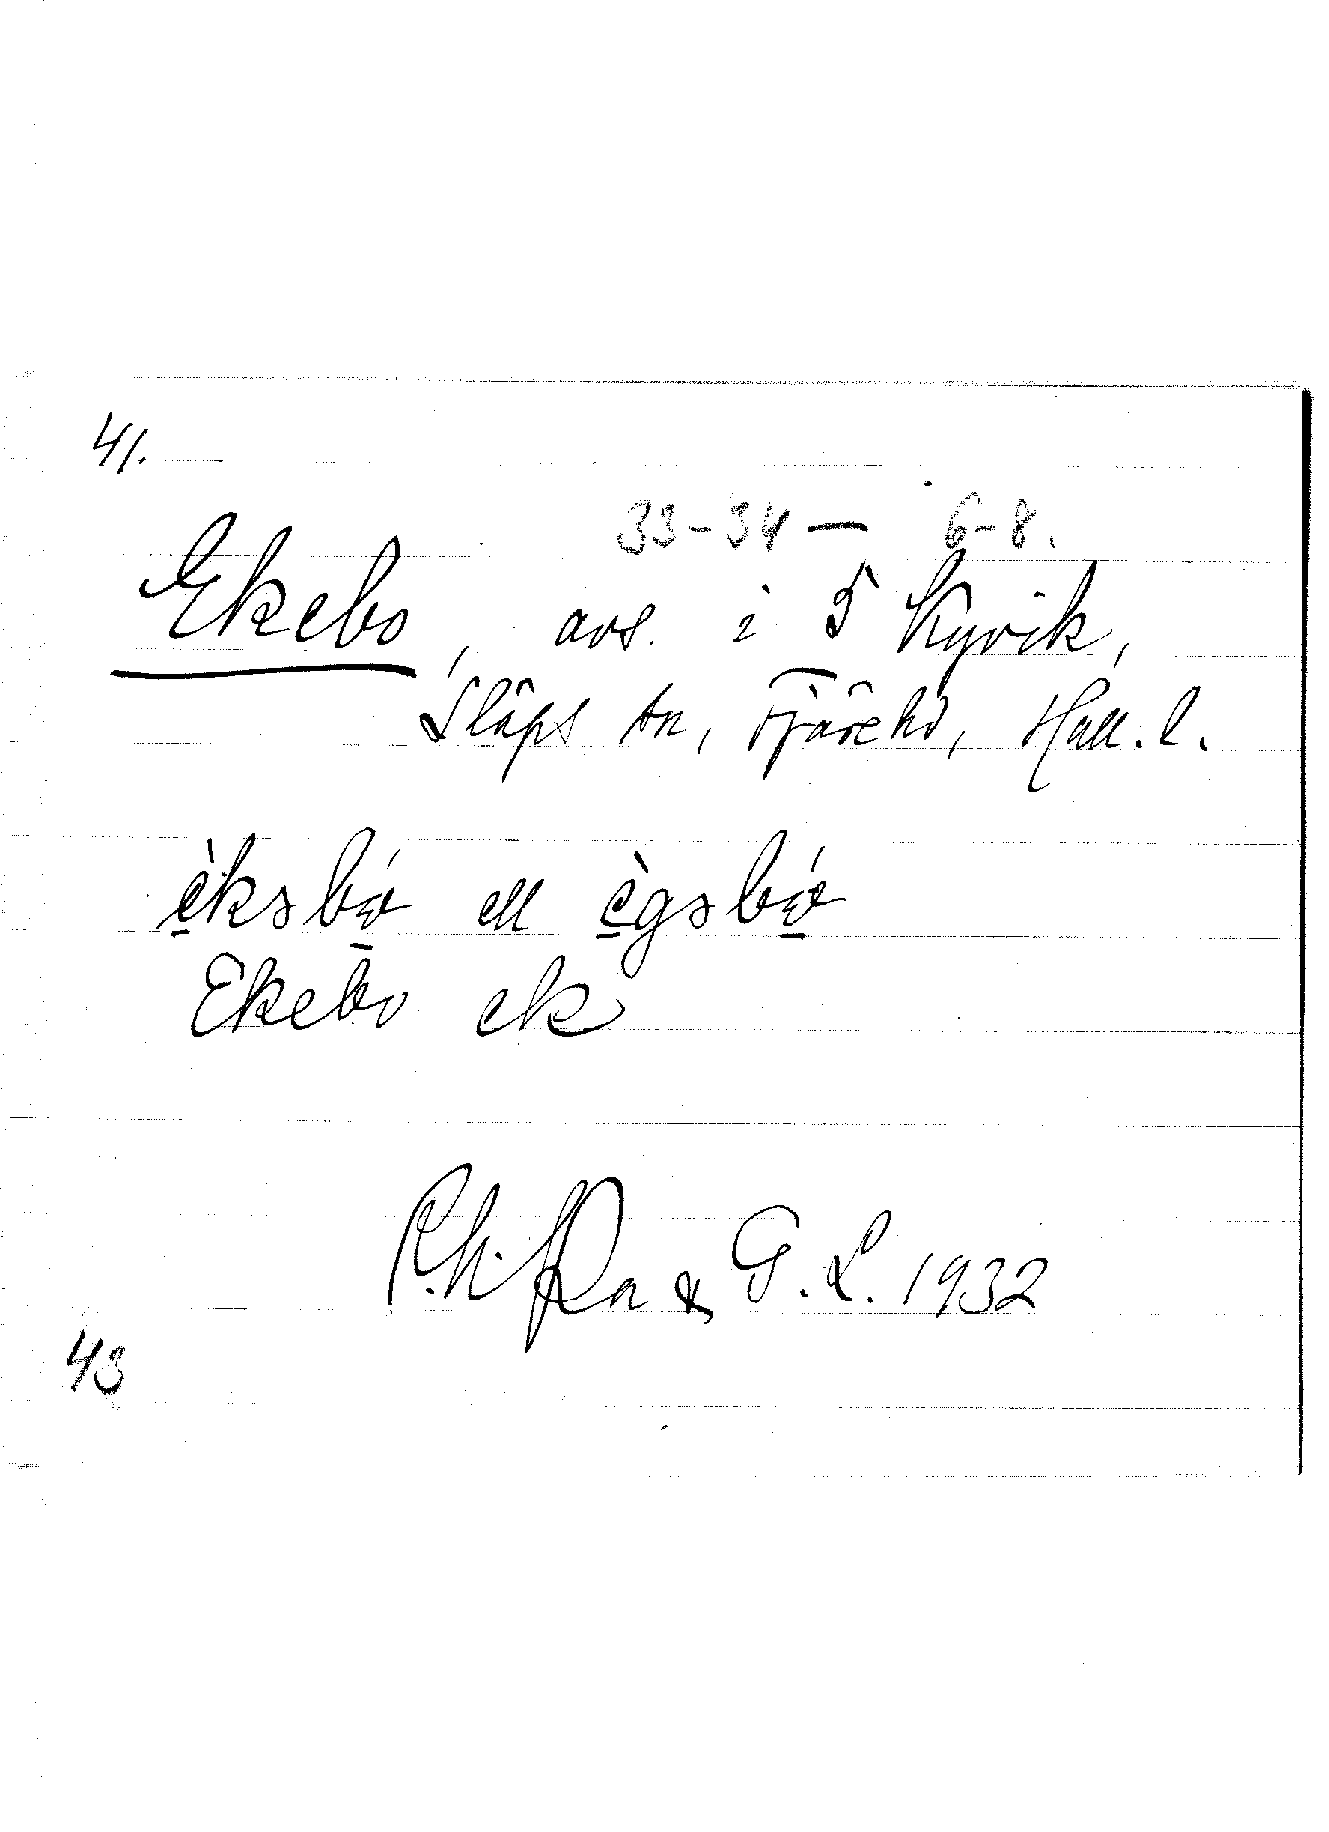 41.
33-34 — 6-8.
Ekebo, avs. i 5 Kyvik,
Släps sn, Fjäre hd, Hall. l.
èksbó ell ègsbó
Ekebo ek
& G. L. 1932
43